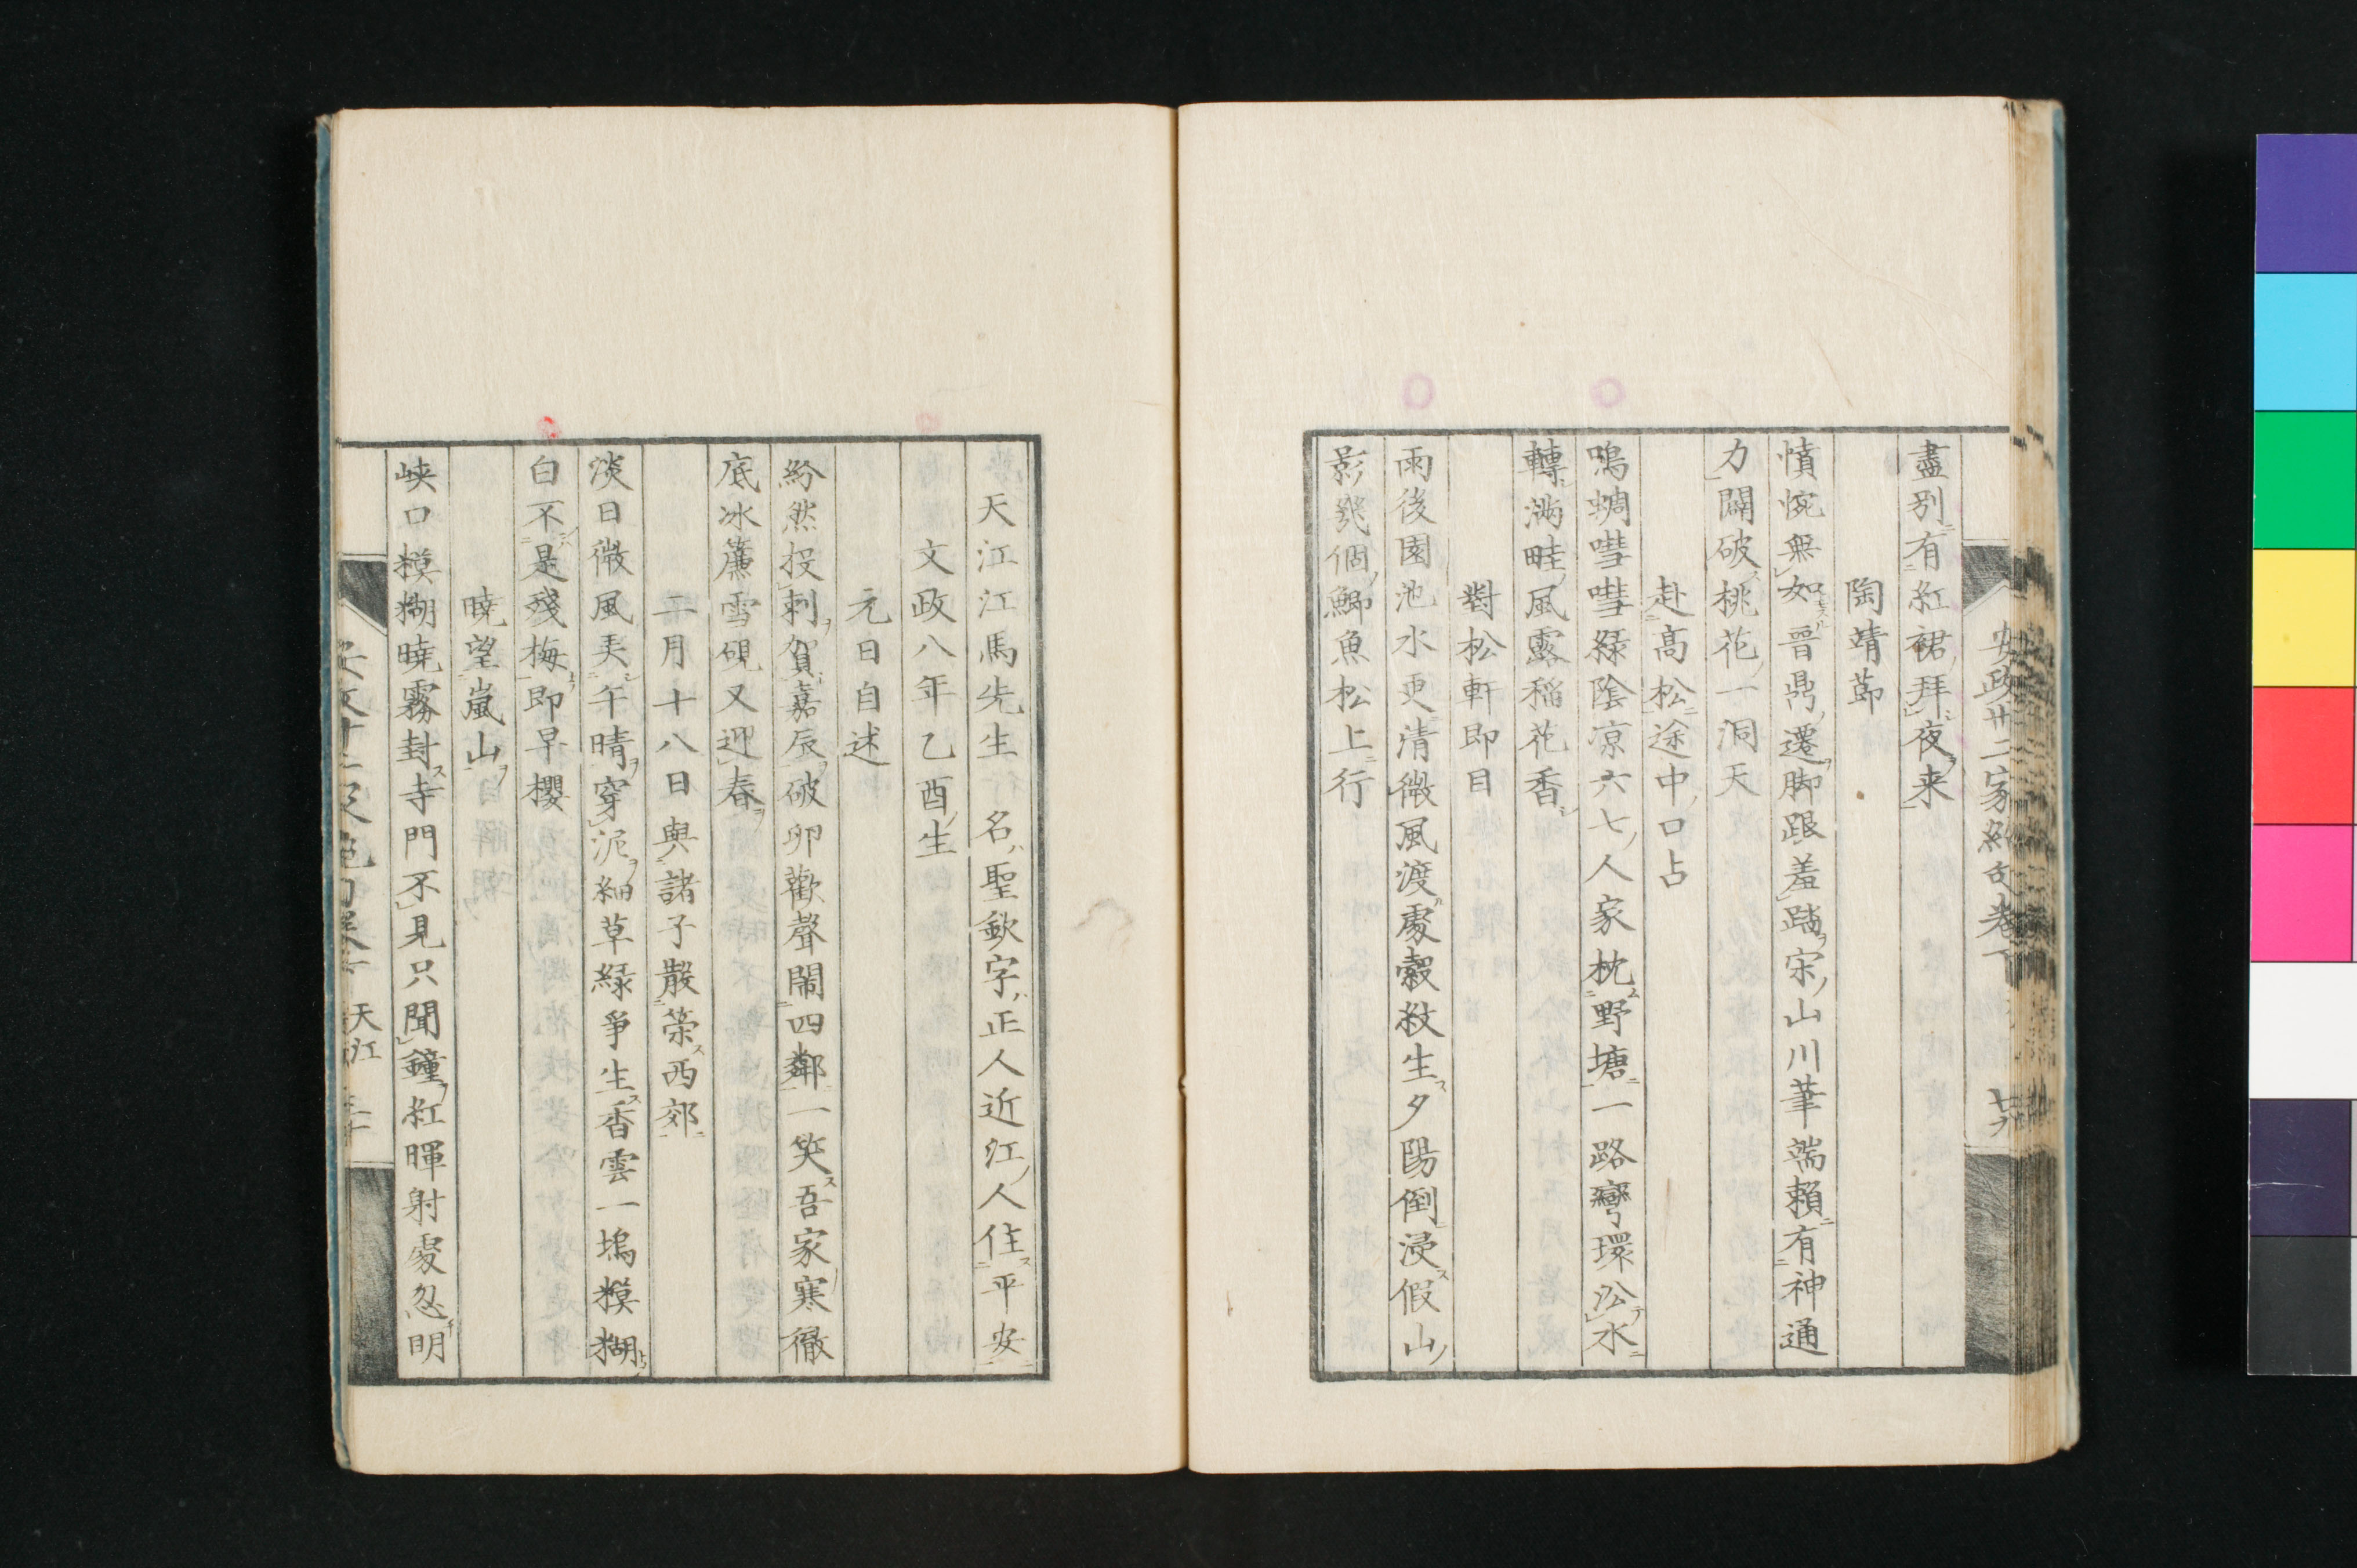 盡別有紅裙拜夜来
陶靖節
憤惋無如晋鼎遷脚跟羞踏宋山川筆端頼有神通
力闢破桃花一洞天
赴高松途中口占
鳴蜩嘒嘒緑陰凉六七人家枕野塘一路彎環沿水
轉満畦風露稲花香
對松軒即目
雨後園池水更清微風渡處縠紋生夕陽倒浸假山
影幾個鯽魚松上行
天江江馬先生 名聖欽字正人近江人住平安
文政八年乙酉生
元日自述
紛然投刺賀嘉辰破卯歡聲鬧四鄰一笑吾家寒徹
底冰簾雪硯又迎春
二月十八日與諸子散䇿西郊
淡日微風美午晴穿泥細草緑爭生香雲一塢糢糊
白不是殘梅即早櫻
暁望嵐山
峡口糢糊暁霧封寺門不見只聞鐘紅暉射處忽明
天江